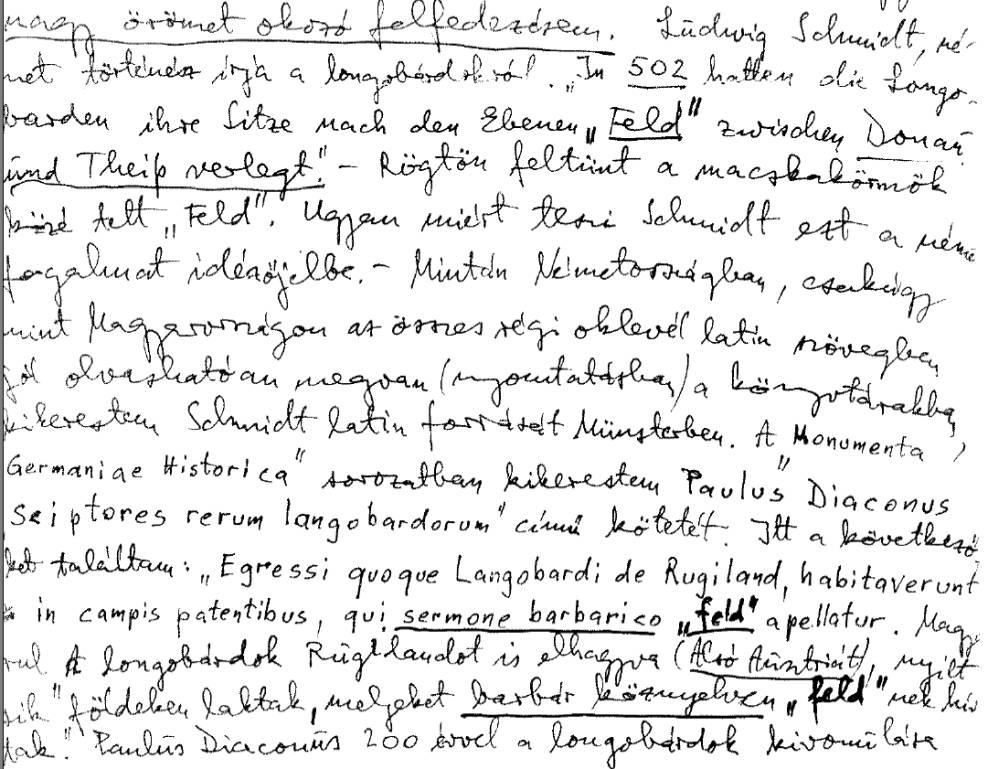 nagy örömet okozó felfedezésem. Ludwig Schmidt, né-
met történész írja a longobárdokról. „In 502 hatten die Longo-
barden ihre Sitze nach den Ebenen „Feld" zwischen Donau
und Theiß verlegt." – Rögtön feltünt a macskakörmök
közé tett „Feld". Ugyan miért teszi Schmidt ezt a néme
fogalmat idézőjelbe. – Miután Németországban, csakúgy
mint Magyarországon az összes régi oklevél latin szövegben
jól olvashatóan megvan (nyomtatásban) a könyvtárakba,
kikerestem Schmidt latin forrását Münsterben. A „Monumenta
Germaniae Historica" sorozatban kikerestem Paulus Diaconus
Sciptores rerum langobardorum" című kötetét. Itt a következő
ket találtam: „Egressi quoque Langobardi de Rugiland, habitaverunt
in campis patentibus, qui sermone barbarico „feld" apellatur. Magy
rul A longobárdok Rugilandot is elhagyva (Alsó Ausztriát), nyílt
sík" földeken laktak, melyeket barbár köznyelven „feld" nek hív
tak." Paulus Diaconus 200 évvel a longobárdok kivonulása